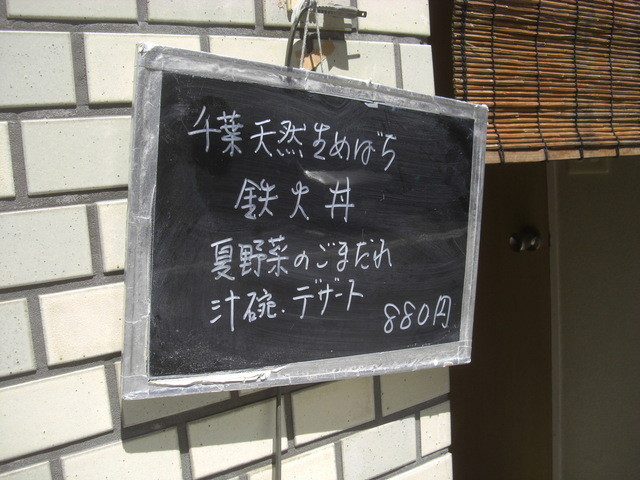 千葉天然生めばち
鉄火丼
夏野菜のごまだれ
汁碗.デザート
880円